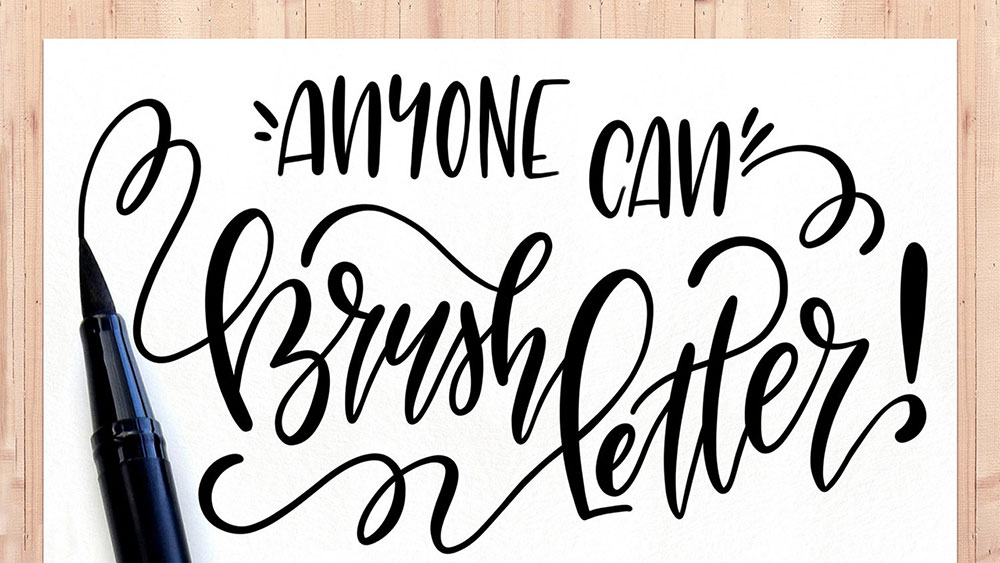 ANYONE CAN
Brush
Letter!